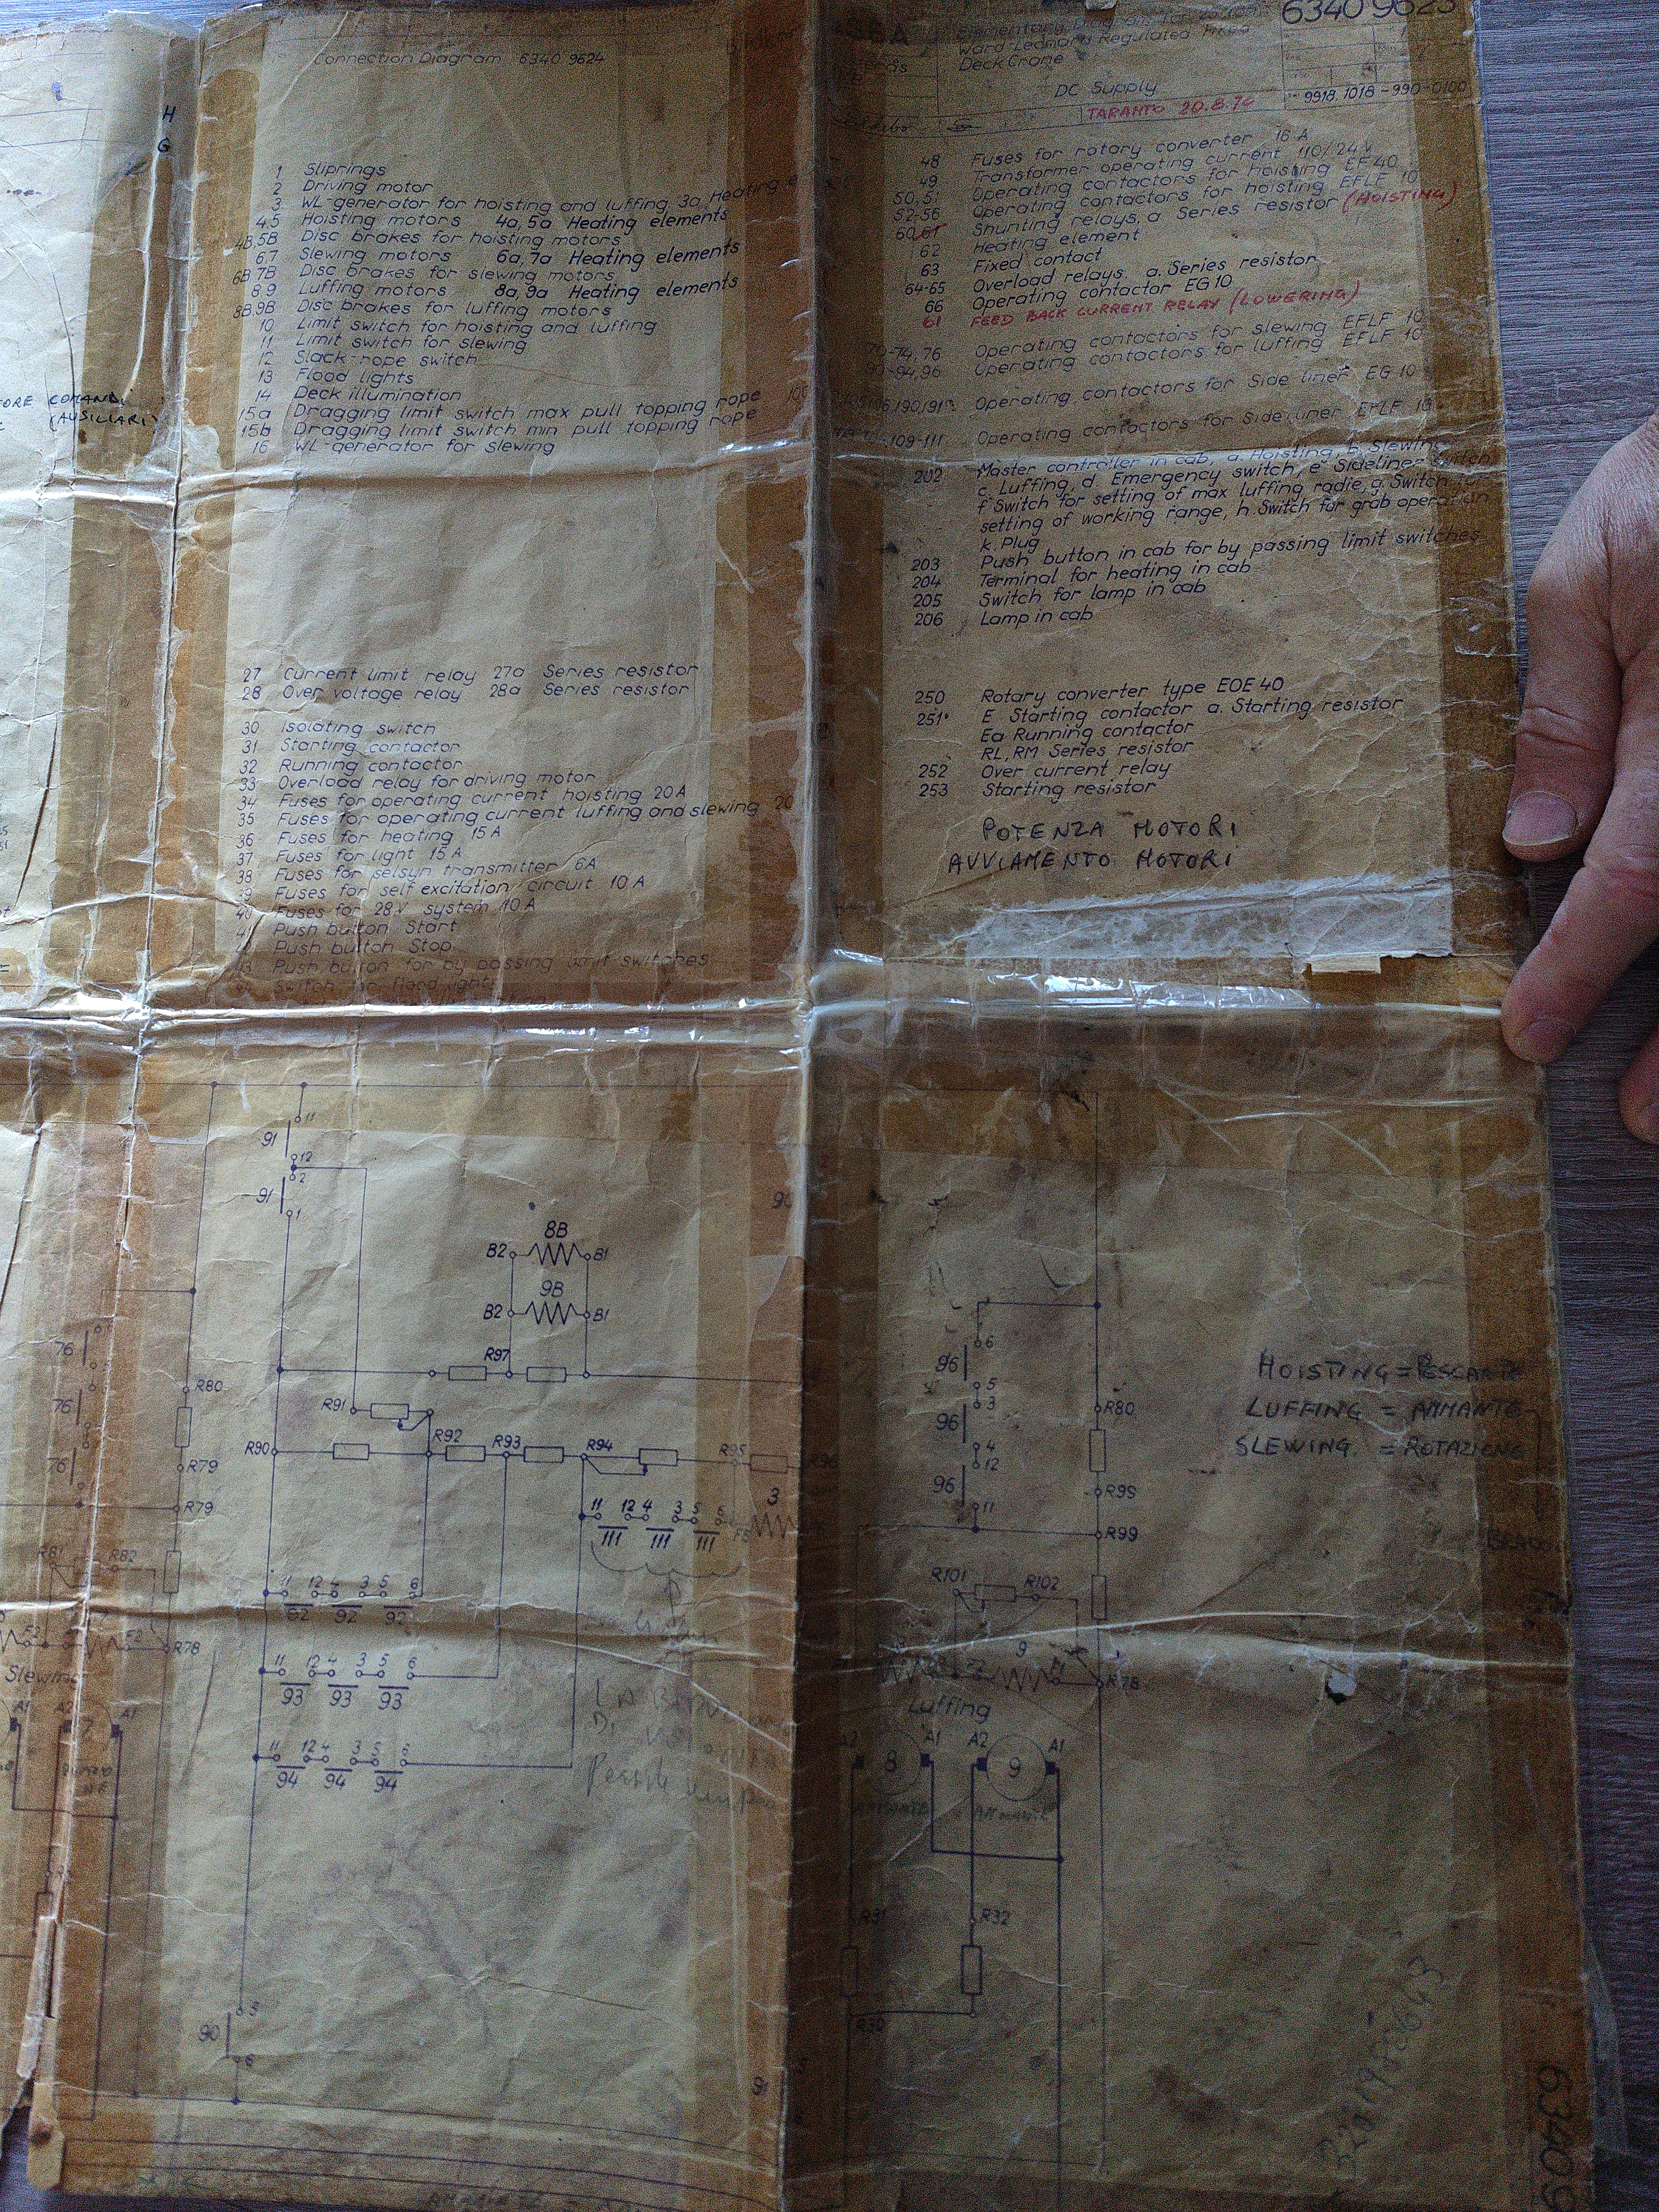 Connection Diagram 6340 9624
1 Sliprings
2 Driving motor
3 WL-generator for hoisting and luffing, 3a Heating
4,5 Hoisting motors 4a, 5a Heating elements
4B,5B Disc brakes for hoisting motors
6,7 Slewing motors 6a, 7a Heating elements
6B,7B Disc brakes for slewing motors
8,9 Luffing motors 8a, 9a Heating elements
8B,9B Disc brakes for luffing motors
10 Limit switch for hoisting and luffing
11 Limit switch for slewing
12 Slack-rope switch
13 Flood lights
14 Deck illumination
15a Dragging limit switch max pull topping rope
15b Dragging limit switch min pull topping rope
16 WL-generator for slewing
27 Current limit relay 27a Series resistor
28 Over voltage relay 28a Series resistor
30 Isolating switch
31 Starting contactor
32 Running contactor
33 Overload relay for driving motor
34 Fuses for operating current hoisting 20A
35 Fuses for operating current luffing and slewing 20
36 Fuses for heating 15A
37 Fuses for light 15A
38 Fuses for selsyn transmitter 6A
39 Fuses for self excitation circuit 10A
40 Fuses for 28V system 10A
41 Push button Start
42 Push button Stop
43 Push button for by passing limit switches
44 Switch for flood lights
6340 9623
Elementary Diagram for
Ward-Leonard Regulated Fixed
Deck Crane
DC Supply
9918.1018-990-0100
TARANTO 20.8.70
48 Fuses for rotary converter 16 A
49 Transformer operating current 110/24V
50,51 Operating contactors for hoisting EF 40
52-56 Operating contactors for hoisting EFLF 10
60,61 Shunting relays, a Series resistor (HOISTING)
62 Heating element
63 Fixed contact
64-65 Overload relays, a. Series resistor
66 Operating contactor EG10
61 FEED BACK CURRENT RELAY (LOWERING)
70-74,76 Operating contactors for slewing EFLF 10
90-94,96 Operating contactors for luffing EFLF 10
Operating contactors for Side liner EG 10
109-111 Operating contactors for Side liner EFLF 10
202 Master controller in cab, a. Hoisting, b. Slewing
c. Luffing, d. Emergency switch, e Sideliner switch
f Switch for setting of max luffing radie, g. Switch for
setting of working range, h. Switch for grab operation
k. Plug
203 Push button in cab for by passing limit switches
204 Terminal for heating in cab
205 Switch for lamp in cab
206 Lamp in cab
250 Rotary converter type EOE 40
251 E Starting contactor a. Starting resistor
Ea Running contactor
RL, RM Series resistor
252 Over current relay
253 Starting resistor
POTENZA MOTORI
AVVIAMENTO MOTORI
H
G
COMANDI
(AUSILIARI)
11
91
12
2
91
1
8B
B2 B1
9B
B2 B1
R97
R91
R90 R92 R93 R94 R95 R96
3
11 12 4 3 5 6 F5
111 111 111
11 12 4 3 5 6
92 92 92
11 12 4 3 5 6
93 93 93
11 12 4 3 5 6
94 94 94
5
90
6
91
76
76
76
R80
R79
R79
R81 R82
F2 F2 R78
Slewing
A1 A2 A1
7
6
96
5
3
96
4
12
96
11
R80
R99
R99
R101 R102
9
R78
Luffing
A2 A1 A2 A1
8 9
AMMANTE AMMANTE
R31 R32
R30
HOISTING = PESCANTE
LUFFING = AMMANTE
SLEWING = ROTAZIONE